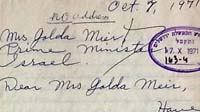 Oct. 7, 1971
no address
Mrs Golda Meir,
Prime Minister
Israel.
17.X 1971
163-4
Dear Mrs Golda Meir,
Have